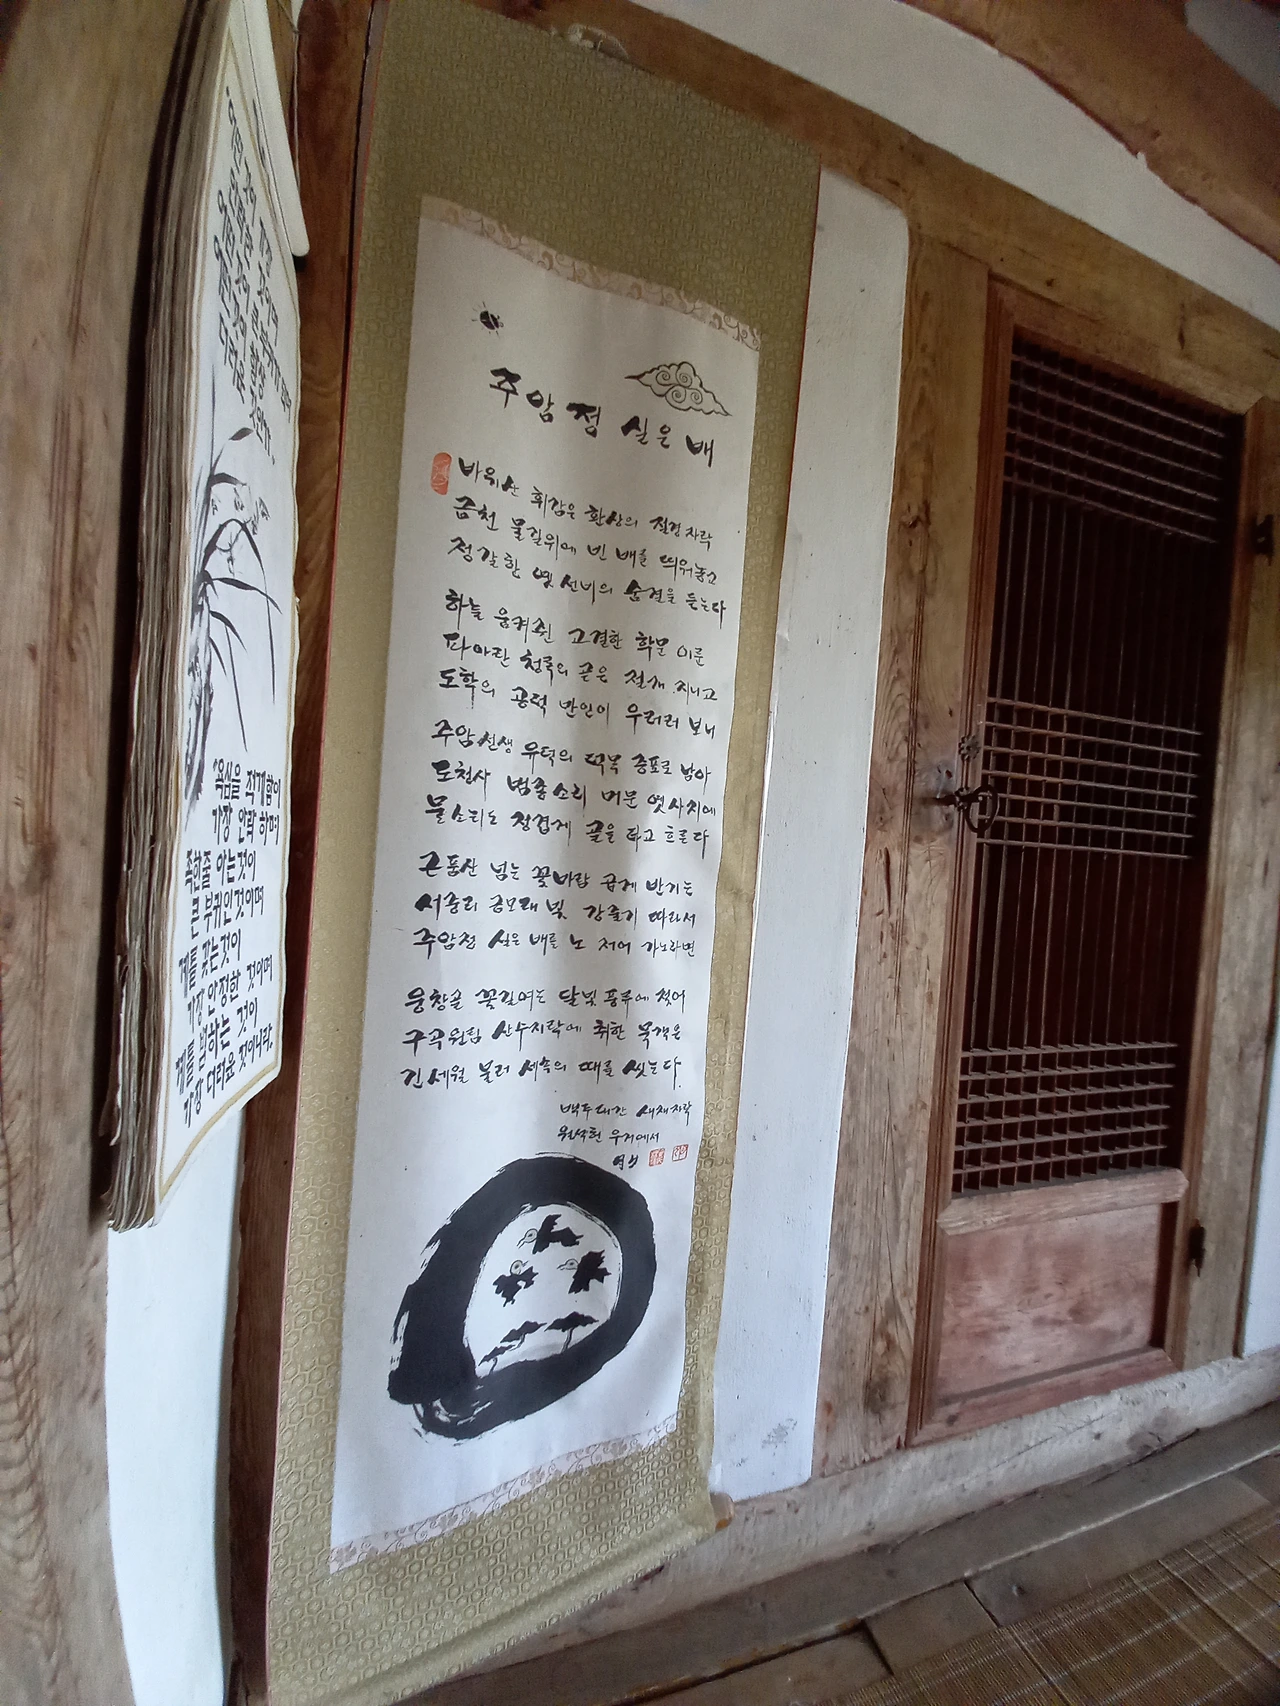 주암정 실은 배
바위산 휘감은 환상의 절경 자락
금천 물길위에 빈 배를 띄워놓고
정갈한 옛 선비의 숨결을 듣는다
하늘 움켜쥔 고결한 학문 이룬
파아란 청록의 곧은 절개 지니고
도학의 공덕 만인이 우러러 보니
주암선생 유덕의 덕목 증표로 남아
도천사 범종소리 머문 옛사지에
물소리는 정겹게 골을 타고 흐른다
근품산 넘는 꽃바람 곱게 반기는
서중리 금모래 빛 강줄기 따라서
주암정 실은 배를 노 저어 가노라면
웅창골 꽃길여는 달빛 풍류에 젖어
구곡원림 산수지락에 취한 묵객은
긴 세월 불러 세속의 때를 씻는다
백두대간 새재자락
우거에서
욕심을 적게함이
가장 안락 하며
족한줄 아는것이
큰 부귀인것이며
계를 갖는것이
가장 안정한 것이며
계를 범하는 것이
가장 더러운 것이니라.